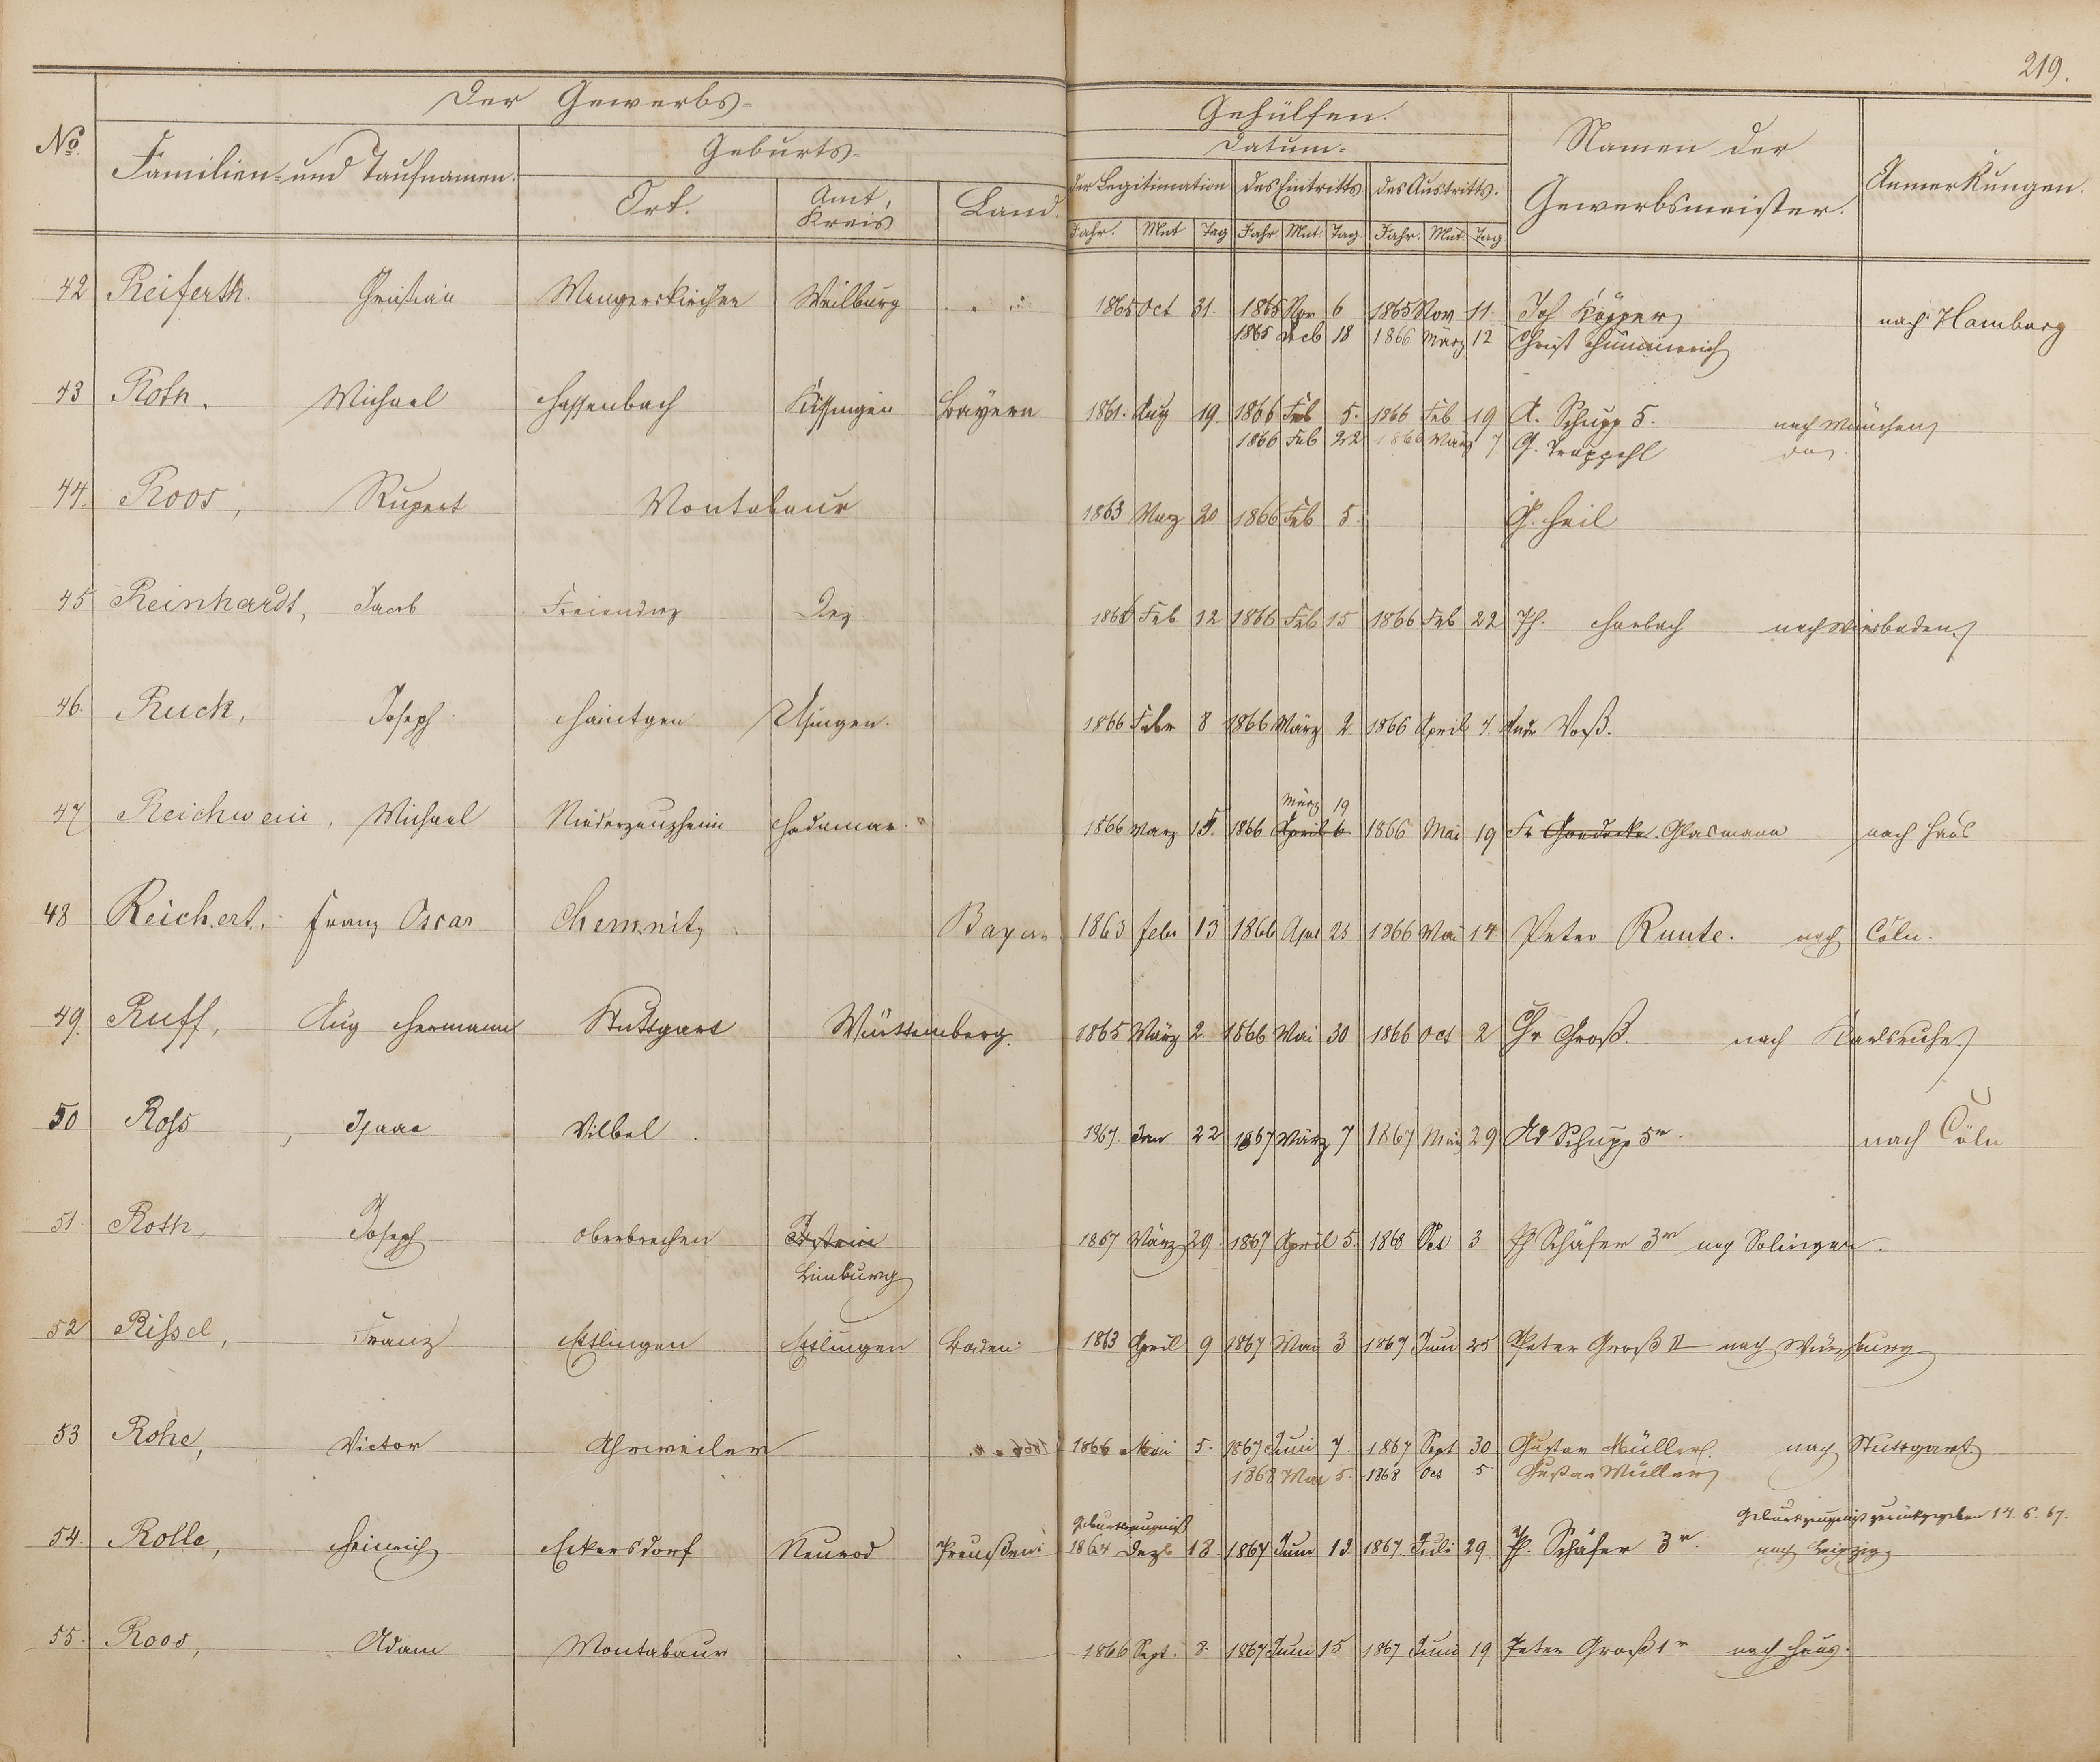 219.
Der Gewerbs-
Gehülfen.
No.
Familien- und Taufnamen.
Geburts-
Datum-
Namen der
Gewerbsmeister.
Anmerkungen.
Ort.
Amt,
Kreis
Land.
der Legitimation
des Eintritts
des Austritts.
Jahr. Mnt Tag Jahr Mnt Tag Jahr. Mnt. Tag
42 Reiferth. Christian Mengerskirchen Weilburg 1865 Oct 31. 1865 Nov 6 1865 Nov 11. Joh Käpper nach Hamburg
1865 Deb 18 1866 März 12 Christ Hümmerich
43 Roth, Michael Hassenbach Kissingen Bayern 1861. Aug 19. 1866 Feb 5. 1866 Feb 19 A. Schupp 5. nach München
1866 Feb 22 1866 März 7 G. Trappehl do.
44. Roos, Rupert Montabaur 1863 März 20 1866 Feb 5. G. Heil
45 Reinhardt, Jacob Freiendiez Diez 1866 Feb 12 1866 Feb 15 1866 Feb 22 Ph. Harbach nach Wiesbaden.
46. Ruck, Joseph Haintgen Usingen. 1866 Febr 8 1866 März 2 1866 April 4. Andr Voß.
März 19
47 Reichwein, Michael Niederzeuzheim Hadamar. 1866 März 15. 1866 April 6 1866 Mai 19 Fr Goedecke. Glasmann nach Haus
48 Reichert. Franz Oscar Chemnitz Bayern 1863 Febr 13 1866 Apr 25 1866 Mai 14 Peter Runte. nach Cöln.
49. Ruff, Aug Hermann Stuttgart Württemberg. 1865 März 2. 1866 Mai 30 1866 Oct 2 Chr Groß. nach Karlsruhe.
50 Ross, Isaac Vilbel. 1867. Jan 22 1867 März 7 1867 März 29 Ad Schupp 5r. nach Cöln
51. Roth, Joseph Oberbrechen Idstein 1867 März 29. 1867 April 5. 1868 Oct 3 Ph Schäfer 3r nach Solingen.
Limburg
52 Rissel, Franz Ettlingen Ettlingen Baden 1863 April 9 1867 Mai 3 1867 Juni 25 Peter Groß II nach Würzburg
53 Rohe, Victor Ahrweiler 1866 Mai 5. 1867 Juni 7. 1867 Sept 30 Gustav Müller. nach Stuttgart.
1868 Mai 5. 1868 Oct 5 Gustav Müller
Geburtszeugniß Geburtszeugniß zurückgegeben 14. 6. 67.
54. Rolle, Heinrich Eckersdorf Neurod Preußen 1864 Dezb 18 1867 Juni 13 1867 Juli 29. Ph. Schäfer 3r. nach Leipzig
55. Roos, Adam Montabaur 1866 Sept. 8. 1867 Juni 15 1867 Juni 19 Peter Groß 1r nach Haus.